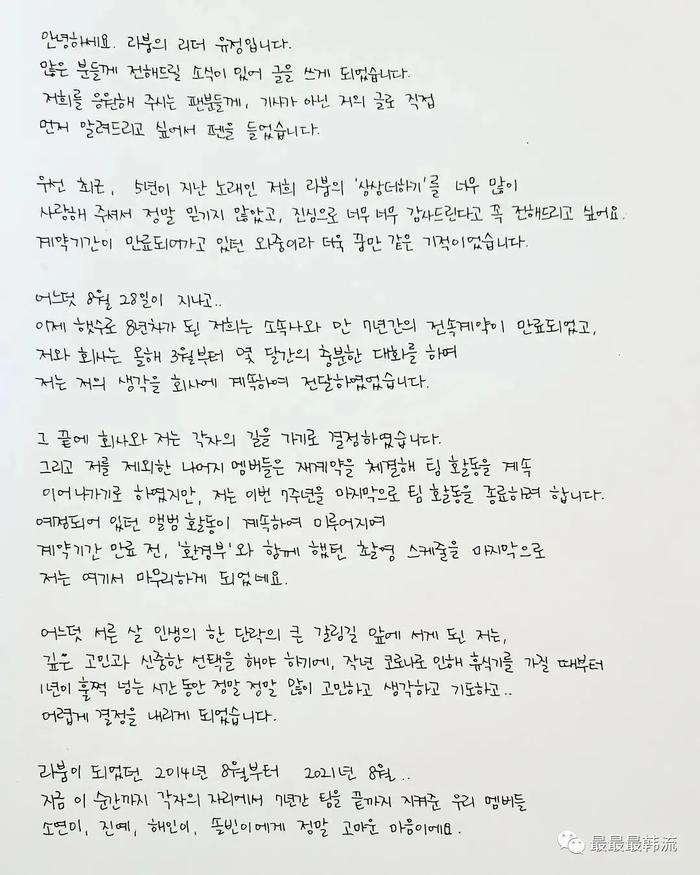 안녕하세요. 라붐의 리더 유정입니다.
많은 분들께 전해드릴 소식이 있어 글을 쓰게 되었습니다.
저희를 응원해 주시는 팬분들께, 기사가 아닌 저의 글로 직접
먼저 알려드리고 싶어서 펜을 들었습니다.
우선 최근, 5년이 지난 노래인 저희 라붐의 '상상더하기'를 너무 많이
사랑해 주셔서 정말 믿기지 않았고, 진심으로 너무 너무 감사드린다고 꼭 전해드리고 싶어요.
계약기간이 만료되어가고 있던 와중이라 더욱 꿈만 같은 기적이었습니다.
어느덧 8월 28일이 지나고..
이제 햇수로 8년차가 된 저희는 소속사와 만 7년간의 전속계약이 만료되었고,
저와 회사는 올해 3월부터 몇 달간의 충분한 대화를 하며
저는 저의 생각을 회사에 계속하여 전달하였었습니다.
그 끝에 회사와 저는 각자의 길을 가기로 결정하였습니다.
그리고 저를 제외한 나머지 멤버들은 재계약을 체결해 팀 활동을 계속
이어나가기로 하였지만, 저는 이번 7주년을 마지막으로 팀 활동을 종료하려 합니다.
예정되어 있던 앨범 활동이 계속하여 미루어지며
계약기간 만료 전, '환경부'와 함께 했던 촬영 스케줄을 마지막으로
저는 여기서 마무리하게 되었네요.
어느덧 서른 살 인생의 한 단락의 큰 갈림길 앞에 서게 된 저는,
깊은 고민과 신중한 선택을 해야 하기에, 작년 코로나로 인해 휴식기를 가질 때부터
1년이 훌쩍 넘는 시간 동안 정말 정말 많이 고민하고 생각하고 기도하고..
어렵게 결정을 내리게 되었습니다.
라붐이 되었던 2014년 8월부터 2021년 8월..
지금 이 순간까지 각자의 자리에서 7년간 팀을 끝까지 지켜준 우리 멤버들
소연이, 진예, 해인이, 솔빈이에게 정말 고마운 마음이에요.
最最最韩流